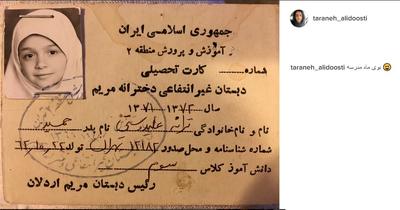 جمهوری اسلامی ایران
آموزش و پرورش منطقه ۲
شماره
کارت تحصیلی
دبستان غیر انتفاعی دخترانه مریم
سال ۱۳۷۲ - ۱۳۷۱
نام و نام‌خانوادگی ترانه علیدوستی نام پدر حمید
شماره شناسنامه و محل صدور ۱۲۱۸۲ تهران تولد
دانش آموز کلاس سوم
رئیس دبستان مریم اردلان
taraneh_alidoosti
taraneh_alidoosti نوی ماه مدرسه 😄